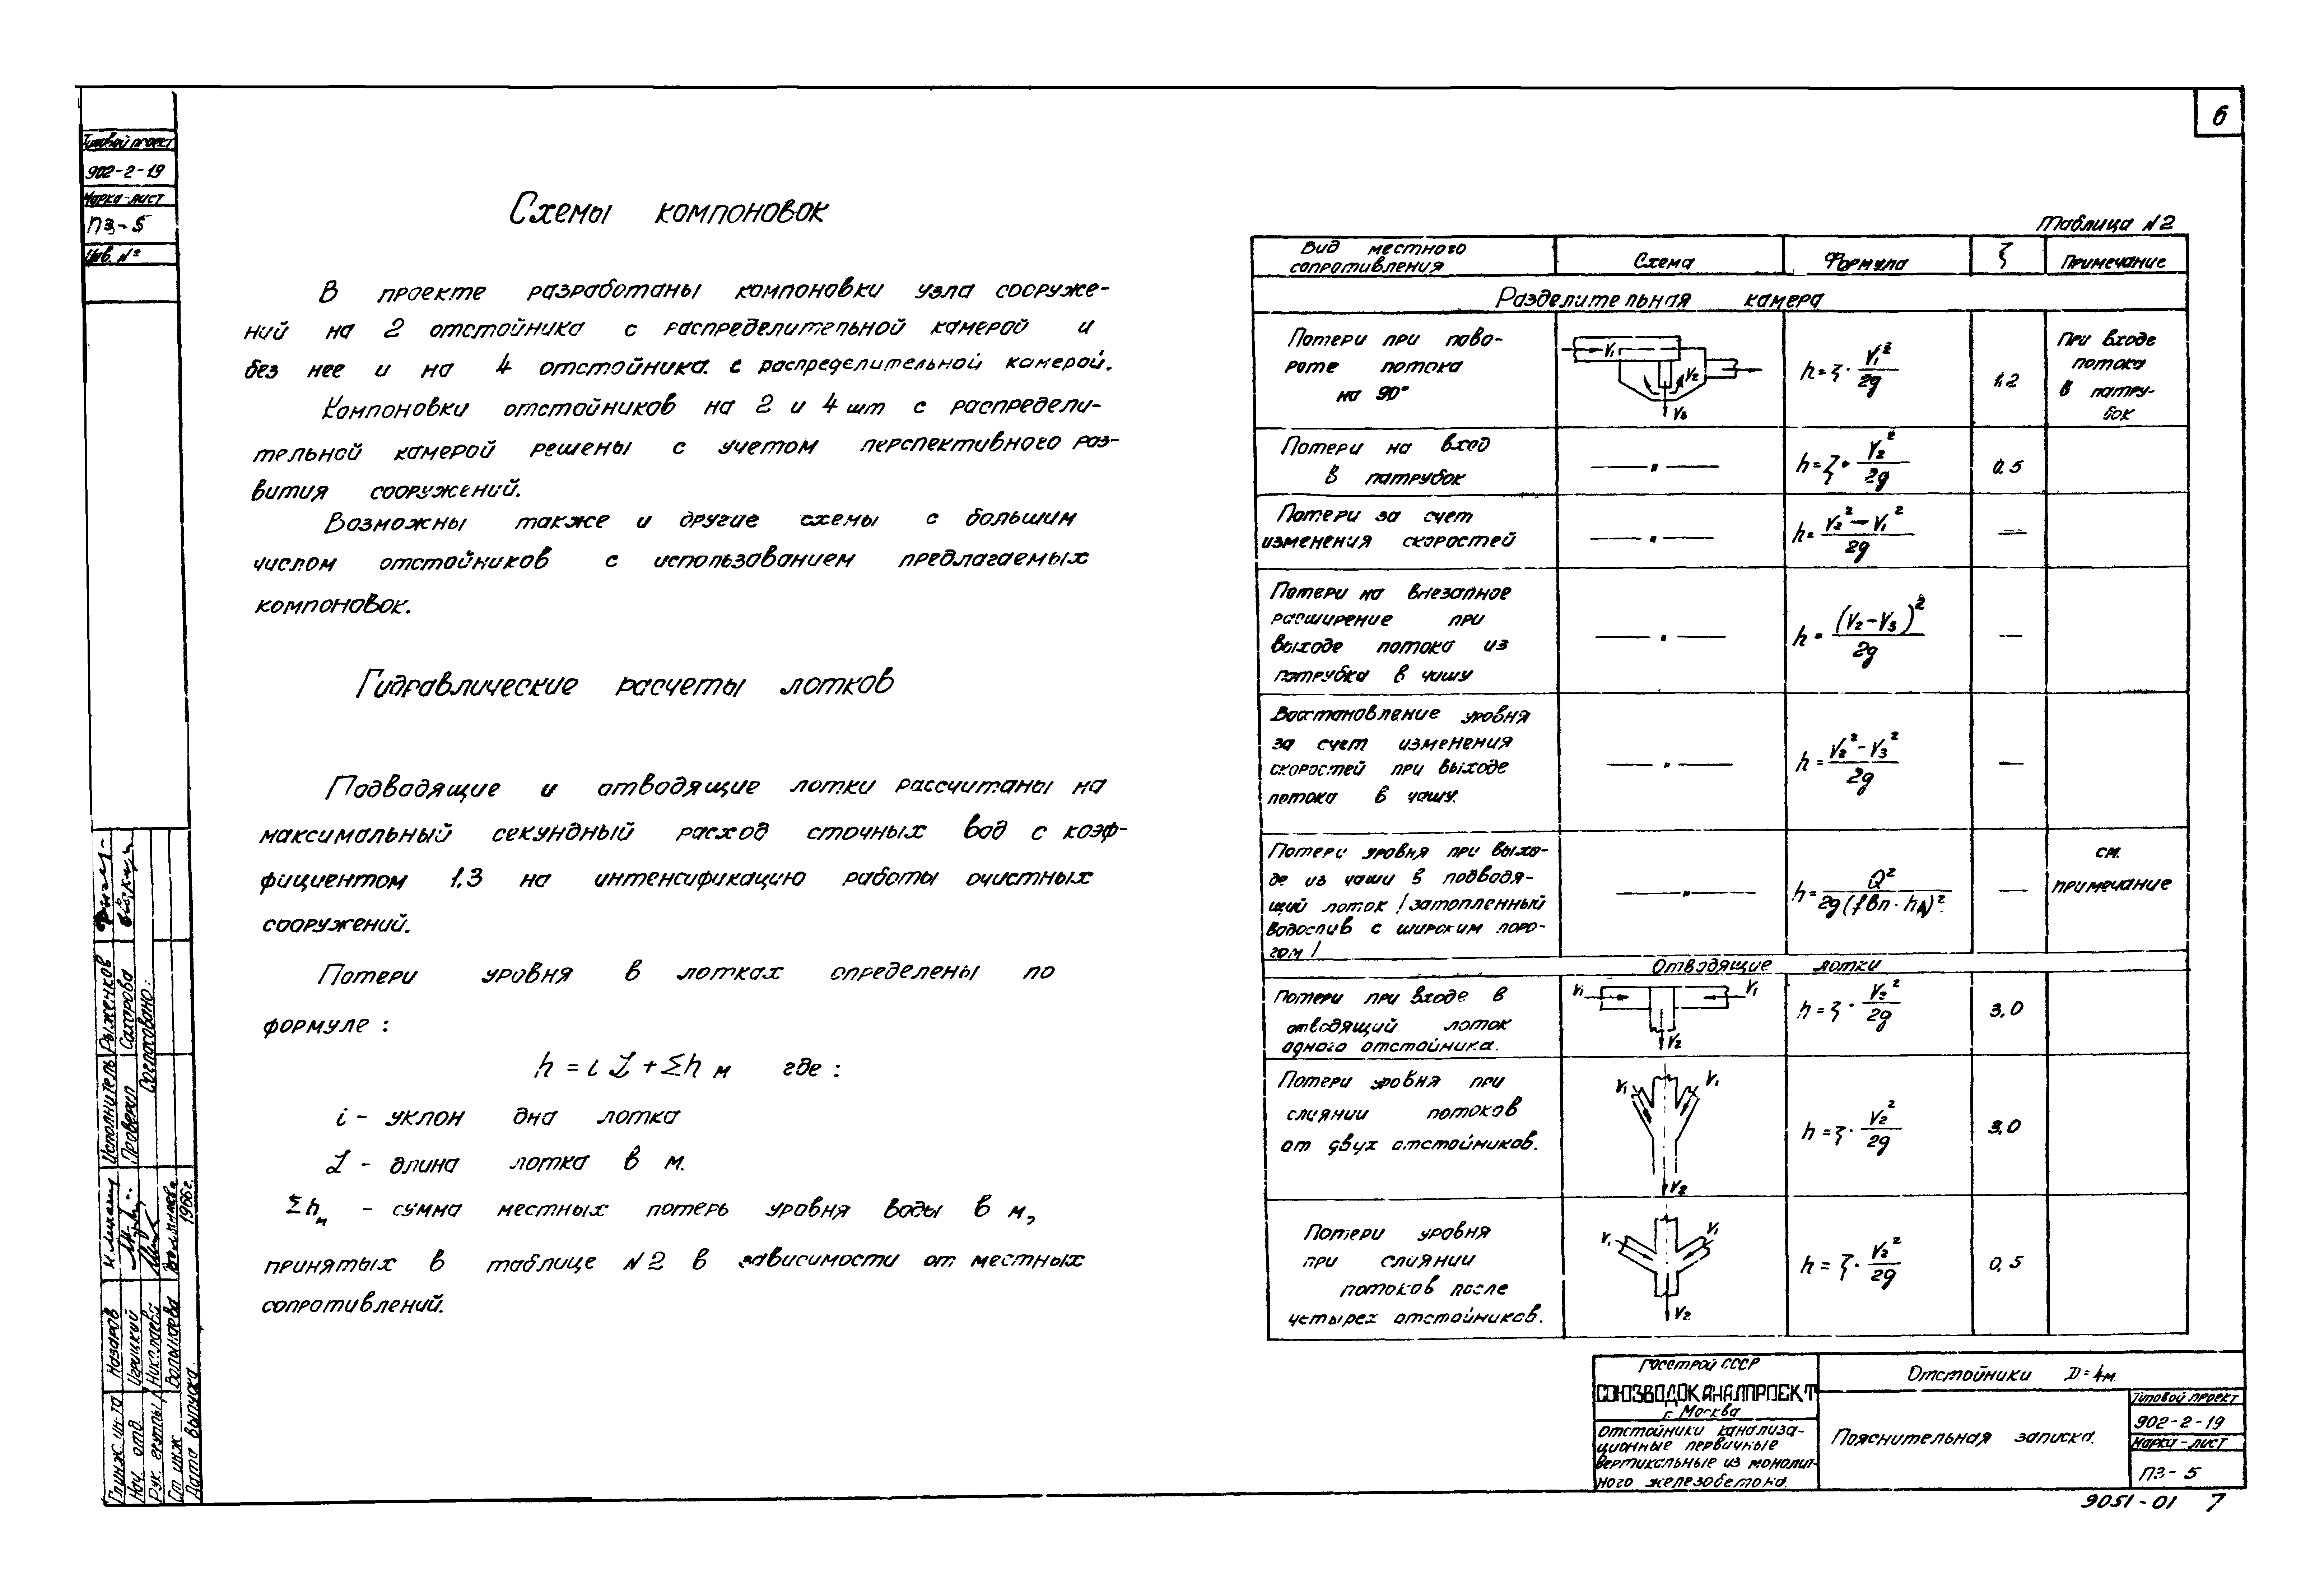 6
Типовой проект
902-2-19
Марка-лист
ПЗ-5
Инв. №
Схемы компоновок
В проекте разработаны компоновки узла сооруже-
ний на 2 отстойника с распределительной камерой и
без нее и на 4 отстойника с распределительной камерой.
Компоновки отстойников на 2 и 4 шт с распредели-
тельной камерой решены с учетом перспективного раз-
вития сооружений.
Возможны также и другие схемы с большим
числом отстойников с использаванием предлагаемых
компоновок.
Гидравлические расчеты лотков
Подводящие и отводящие лотки рассчитаны на
максимальный секундный расход сточных вод с коэф-
фициентом 1.3 на интенсификацию работы очистных
сооружений.
Потери уровня в лотках определены по
формуле:
h = i L + Σh м где:
i - уклон дна лотка
L - длина лотка в м.
Σhм - сумма местных потерь уровня воды в м,
принятых в таблице №2 в зависимости от местных
сопротивлений.
Таблица №2
Вид местного сопротивления Схема Формула ζ Примечание
Разделительная камера
Потери при пово-
роте потока
на 90°
V1 V2 V3
h = ζ · V1²/2g
1,2
При входе
потока
в патру-
бок
Потери на вход
в патрубок
— " —
h = ζ · V2²/2g
0.5
Потери за счет
изменения скоростей
— " —
h = V2² - V1²/2g
—
Потери на внезапное
расширение при
выходе потока из
патрубка в чашу
— " —
h = (V2 - V3)²/2g
—
Восстановление уровня
за счет изменения
скоростей при выходе
потока в чашу.
— " —
h = V2² - V3²/2g
—
Потери уровня при выхо-
де из чаши в подводя-
щий лоток /затопленный
водослив с широким поро-
гом/
— " —
h = Q²/2g(fвп · hл)²
—
см.
примечание
Отводящие лотки
Потери при входе в
отводящий лоток
одного отстойника.
V1 V1 V2
h = ζ · V2²/2g
3,0
Потери уровня при
слиянии потоков
от двух отстойников.
V1 V1 V2
h = ζ · V2²/2g
3,0
Потери уровня
при слиянии
потоков после
четырех отстойников.
V1 V1 V2
h = ζ · V2²/2g
0,5
Госстрой СССР
СОЮЗВОДОКАНАЛПРОЕКТ
г. Москва
Отстойники канализа-
ционные первичные
вертикальные из монолит-
ного железобетона.
Отстойники D=4м.
Пояснительная записка.
Типовой проект
902-2-19
Марка-лист
ПЗ-5
9051-01 7
Гл.инж. ин-та Назаров
Нач. отд. Угрицкий
Рук. группы Николаева
Ст инж
Дата выпуска. 1966г.
Исполнитель Рыженков
Проверил Сахарова
Согласовано: